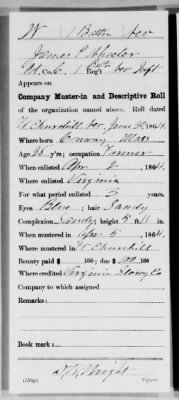 W 1 Battn Nev
James P. Wheeler
Pvt. Co. C, 1 Bttn Nev Inft
Appears on
Company Muster-in and Descriptive Roll
of the organization named above. Roll dated
Ft Churchill Nev, June 30, 1864.
Where born Conway Mass
Age yrs; occupation Farmer
When enlisted Apr 5, 1864.
Where enlisted Virginia
For what period enlisted 3 years.
Eyes Blue; hair Sandy
Complexion Sandy; height 5 ft. 11 in.
When mustered in Apr 5, 1864.
Where mustered in Ft Churchill
Bounty paid $ 100; due $ 100 100
Where credited Virginia Storey Co
Company to which assigned
Remarks:
Book mark:
Wright
Copyist.